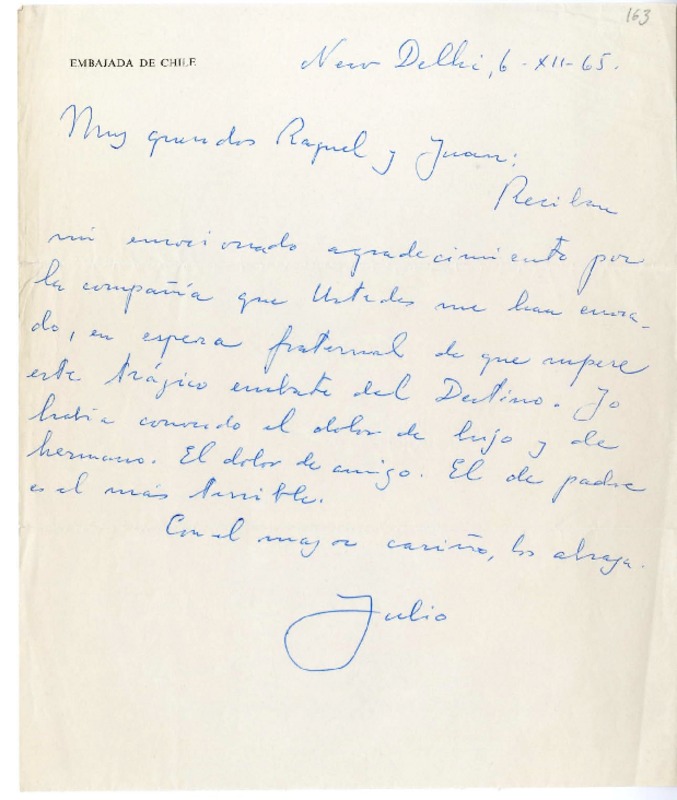 163
EMBAJADA DE CHILE
New Delhi, 6-XII-65.
Muy queridos Raquel y Juan:
Reciban
mi emocionado agradecimiento por
la compañía que Ustedes me han envia-
do, en espera fraternal de que supere
este trágico embate del Destino. Yo
había conocido el dolor de hijo y de
hermano. El dolor de amigo. El de padre
es el más terrible.
Con el mayor cariño, los abraza.
Julio